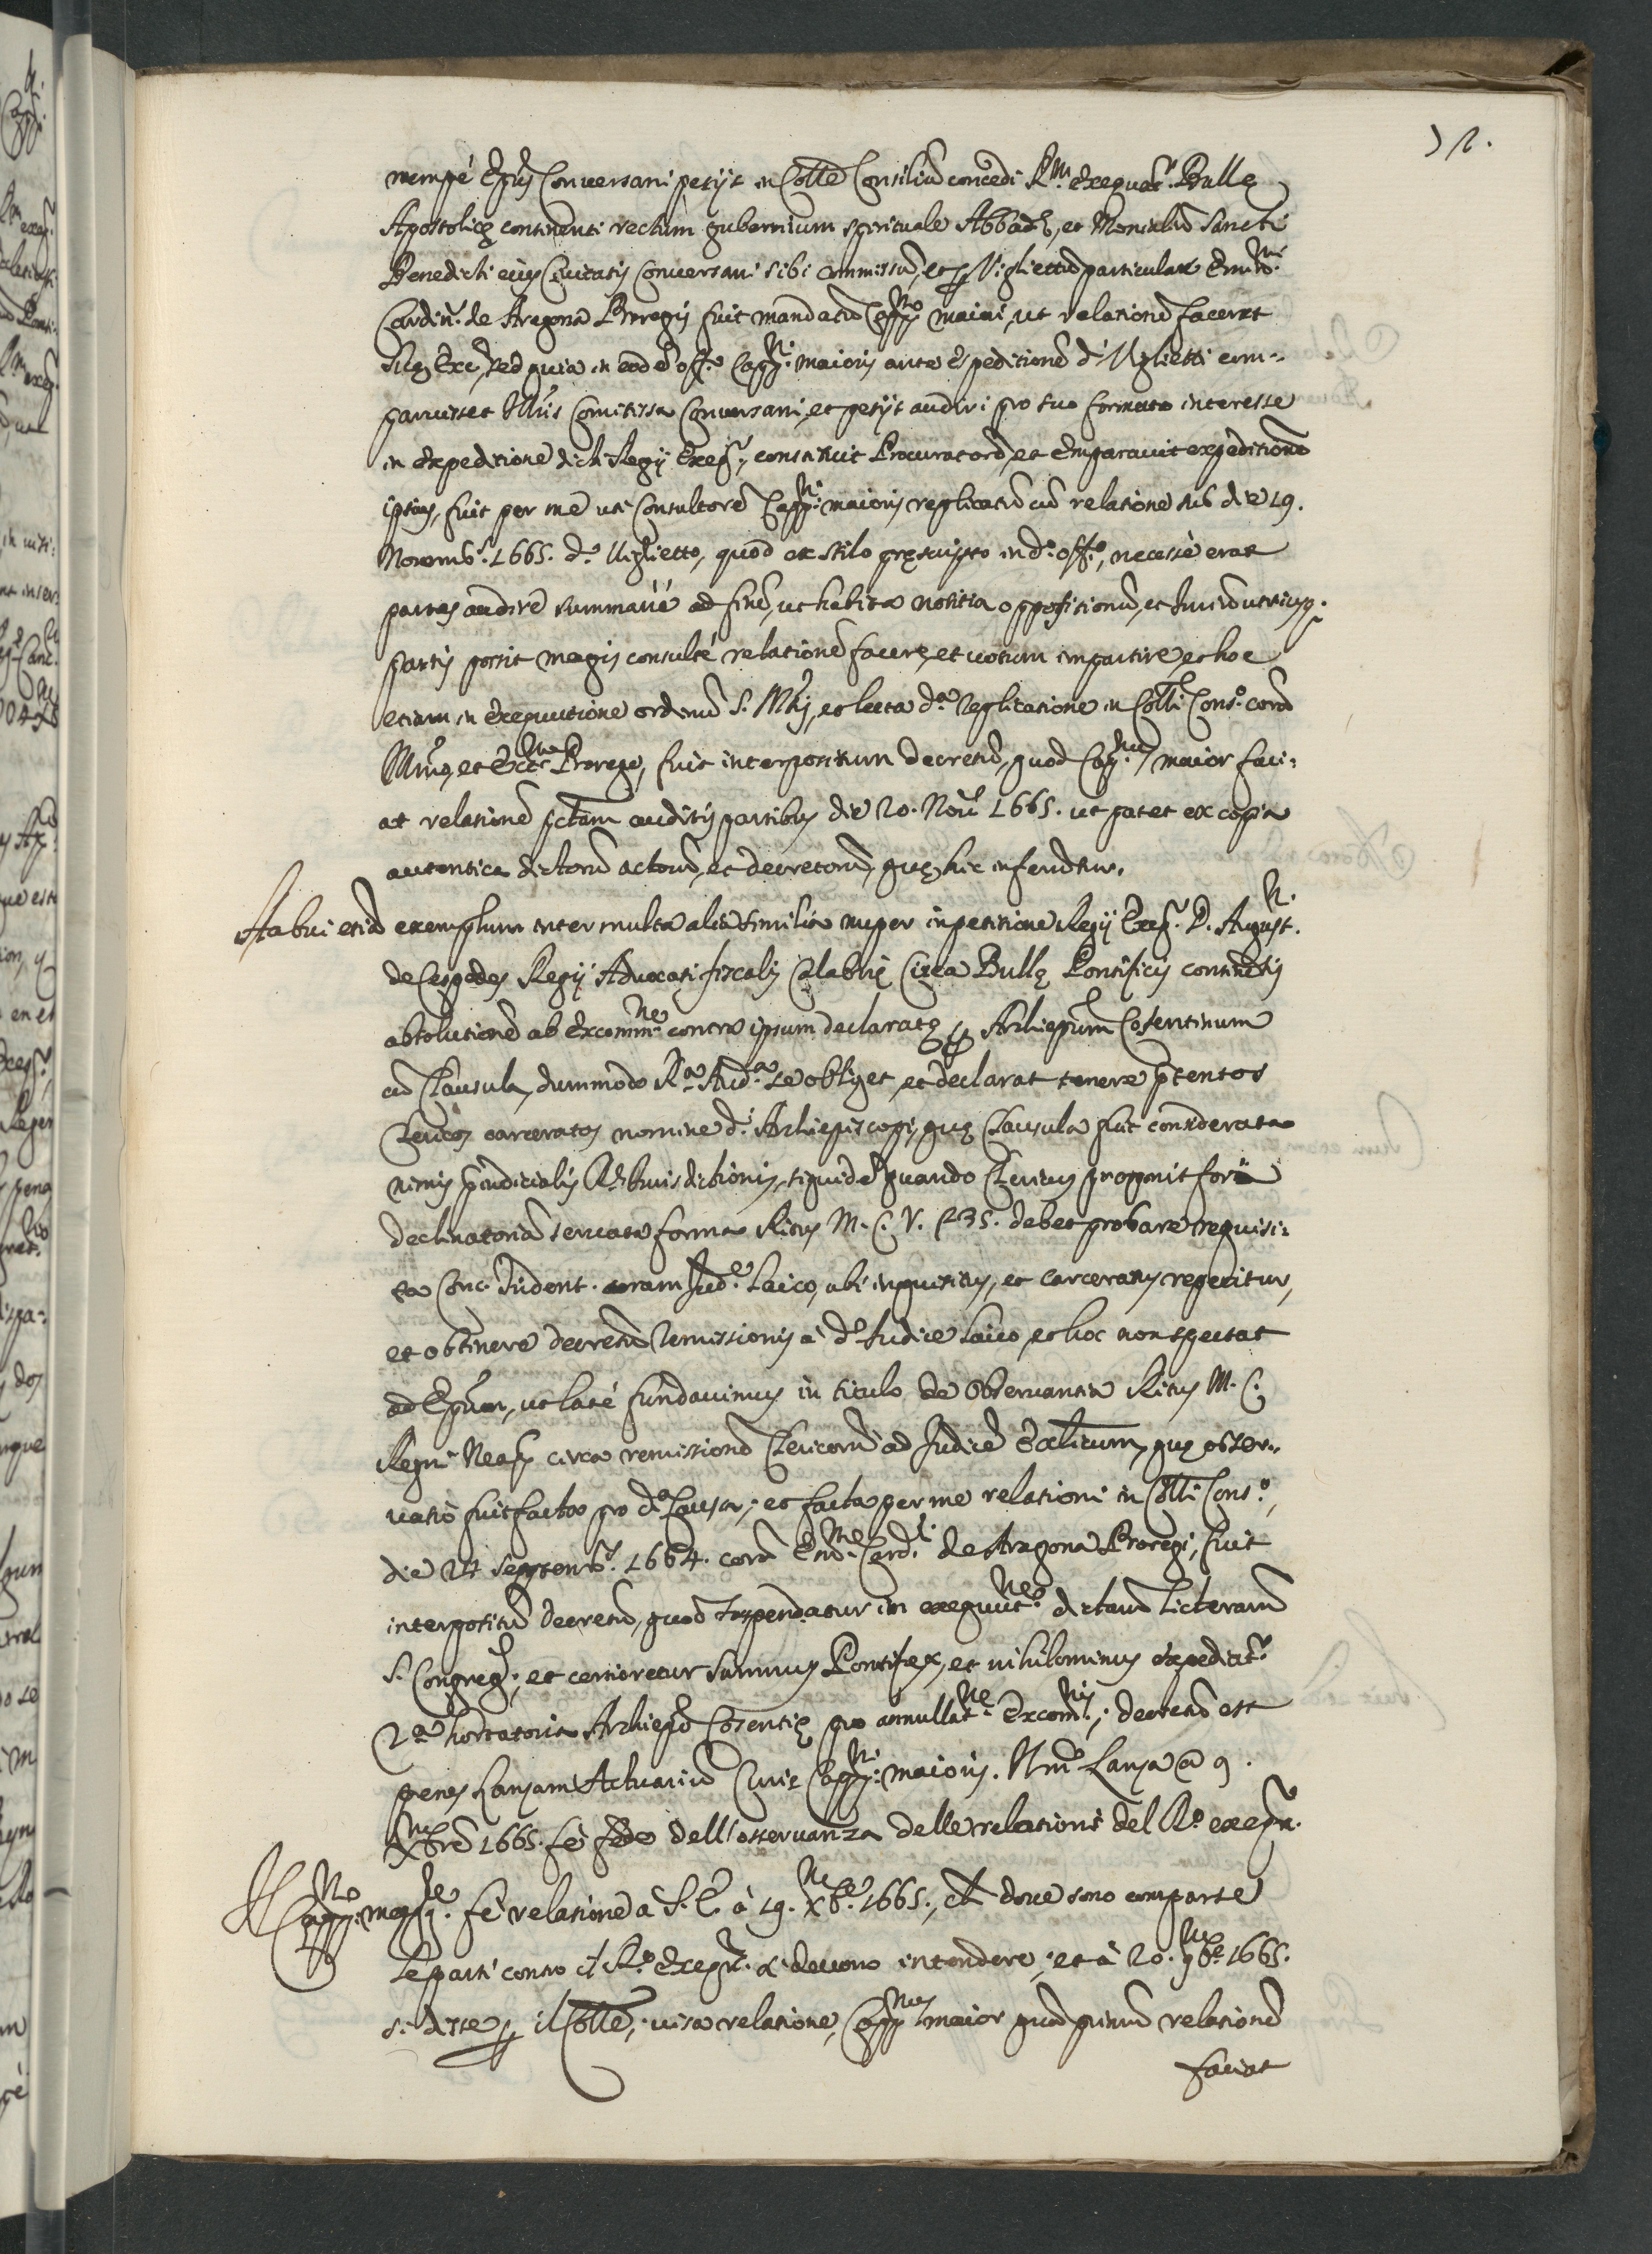 nempé Ep̃us Conversani petijt in Colle Consiliũ concedi R.m exequat.r Bullę
Apostolicę continenti rectum gubernium spirituale Abbad.ę, et Monialiũ Sancti
Benedicti eius Civitatis Conversani sibi commissũ, et p Vigliettũ particulare Emin.mi
Cardin. de Aragona Proregis fuit mandatũ Capp.no maiori, ut relationẽ faceret
Suę Exc., sed quia in eodẽ off.o Capp.ni maioris ante expeditionẽ d.i Viglietti com-
paruisset Ill.is Comitissa Conversani, et petijt audiri pro suo formato interesse
in expeditione dicti Regij Exeq.r, constituit Procuratorẽ, et Emparavit expeditionẽ
ipsius, fuit per me uti Consultorẽ Capp.ni maioris replicatũ cũ relatione sub die 19.
Novemb.s 1665. d.o Viglietto, quod ex stilo pręscripto in d.o off.o, necesse erat
partes audire summarié ad finẽ, ut habita notitia oppositionũ, et Iuriũ utriusq.
partis possit magis consulté relationẽ facere, et votum impartire, et hoc
etiam in exequutione ordinũ S. M.tis, et lecta d.a replicatione in Colli Cons.o corã
Ill.mo, et Ecc.mo Prorege, fuit interpositum decretũ, quod Cap.nus maior faci-
at relationẽ p̃ctam auditis partibus die 20. Nov. 1665. ut patet ex copia
autentica dictorũ actorũ, et decretorũ, quę hic inferũtur.
Habui etiã exemplum inter multa alia similia nuper in petitione Regij Exeq.r D. August.ni
de Cespedes Regij Advocati fiscalis Calabrię Circa Bullę Pontificis continẽtis
absolutionẽ ab Excomm.ne contra ipsum declaratę p Archiepũm Cosentinum
cũ Clausula, dummodo R.a Aud.a se obliget, et declarat tenere p̃tentos
Clericos carceratos nomine d.i Archiepiscopi, quę Clausula fuit considerata
nimis p̃iudicialis R. Iurisdictionis, siquidẽ quando Clericus proponit fori
declinatoriã servata forma Ritus M. C. V. 235. debet probare requisi-
ta Conc. Trident. coram Iud.e Laico, ubi inquisitus, et carceratus reperitur,
et obtinere decretũ remissionis à d.o Iudice laico, et hoc non spectat
ad Ep̃um, ut laté fundavimus in titulo de Observantia Ritus M. C.
Regni Neap. circa remissionẽ Clericorũ ad Iudicẽ Ecc.licum, quę obser-
vatio fuit facta pro d.a Causa, et facta per me relationi in Colli Cons.o,
die 24 Septemb.s 1664. corã Em.mo Card.l de Aragona Proregi, fuit
interpositũ decretũ, quod suspendatur in exequut.ne dictarũ licterarũ
S. Congreg.s, et certioretur Summus Pontifex, et nihilominus expediat.r
2.a hortatoria Archiepõ Cosentię pro annullat.ne Excom.nis, decretũ est
penes Lanzam Actuariũ Curię Capp.ni maioris. Lanza a 9.
Xbre 1665. fé fede dell'osservanza delle relationi del R.o exequr.
Il Capp.no magg.re fé relatione à S. E. à 19. 9bre 1665., che dove sono comparse
le parti contro il R.o exequr. si devono intendere, et à 20. 9bre 1665.
si disse p il Colle, visa relatione, Capp.nus maior quod primũ relationẽ
faciat